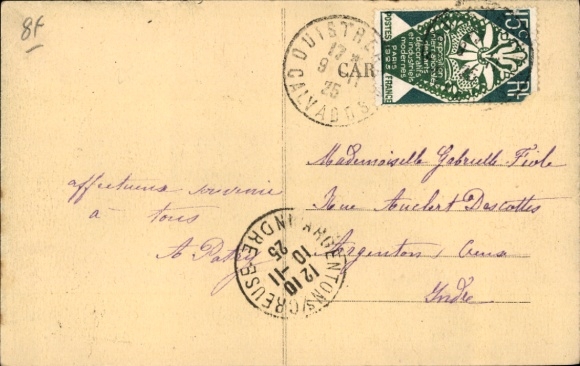 8f
OUISTRE
13
9 11
25
CALVADOS
CAR
15c
RF
exposition
internationale
décoratifs
et industriels
modernes
PARIS
POSTES 1925 FRANCE
Mademoiselle Gabrielle Fiole
affectueux souvenir
Rue Auclert Descottes
à tous
Argenton Creuse
A Patry
Indre
ARGENTON S/ CREUSE
INDRE
12 10
10 -11
25